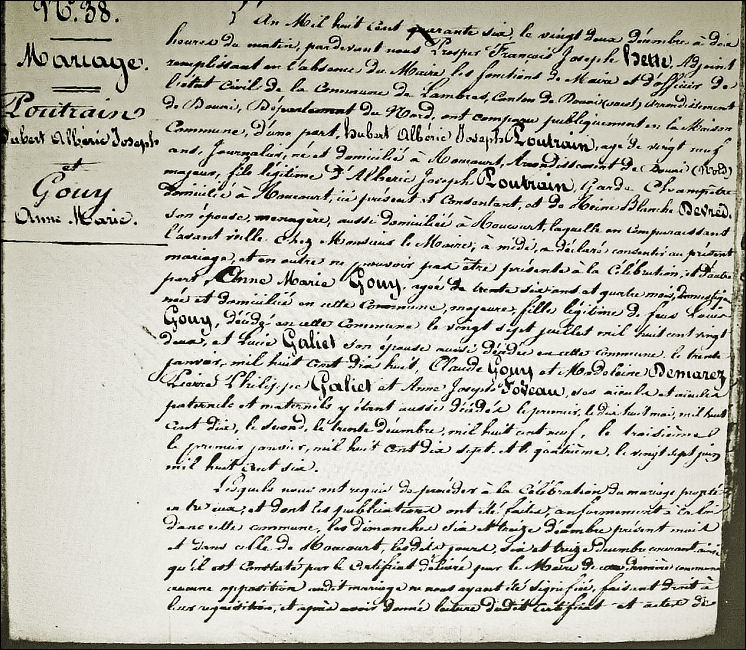 N.º 38.
Mariage.
Poutrain
Hubert Albéric Joseph
et
Gouy
Anne Marie.
L'An Mil huit cent quarante six, le vingt deux décembre à dix
heures du matin, pardevant nous Prosper François Joseph Adjoint
remplissant en l'absence du Maire, les fonctions de Maire et d'officier de
l'état Civil de la Commune de Lambres, Canton de Douai (ouest) arrondissement
de Douai, Département du Nord, ont comparu publiquement en la Maison
Commune, d'une part, Hubert Albéric Joseph Poutrain, agé de vingt neuf
ans, Journalier, né et domicilié à Arrondissement de Douai (Nord)
majeur, fils légitime d'Albéric Joseph Poutrain, Garde Champêtre
domicilié à ici présent et Consentant, et de Reine Blanche Devred,
son épouse, menagère, aussi domiciliée à laquelle en comparaissant
l'avant veille Chez Monsieur le Maire, à midi, a déclaré consentir au présent
mariage, et en outre ne pouvoir pas être présente à la Célébration; et d'autre
part, Anne Marie Gouy, agée de trente six ans et quatre mois,
née et domiciliée en cette Commune, majeure, fille légitime de feus Louis
Gouy, décédé en cette Commune le vingt sept juillet mil huit cent vingt
deux, et Lucie Galiet son épouse aussi décédée en cette commune le trente
janvier, mil huit cent dix huit, Claude Gouy et Madeleine Demarez
Pierre Philippe Galiet et Anne Joseph ses aïeuls et aïeules
paternels et maternels y étant aussi décédés le premier, le dix huit mai, mil huit
cent dix, le second, le trente décembre, mil huit cent neuf, le troisième
le premier janvier, mil huit cent dix sept, et le quatrième, le vingt sept juin
mil huit cent six.
Lesquels nous ont requis de procéder à la Célébration du mariage projeté
entre eux, et dont les publications ont été faites, conformément à la loi
dans cette commune, les dimanches six et treize décembre présent mois
et dans celle de les dits jours, six et treize décembre courant ainsi
qu'il est Constaté par le Certificat délivré par le Maire de cette dernière commune
aucune opposition audit mariage ne nous ayant été signifiée, faisant droit à
leur réquisition, et après avoir donné lecture dudit Certificat et actes de